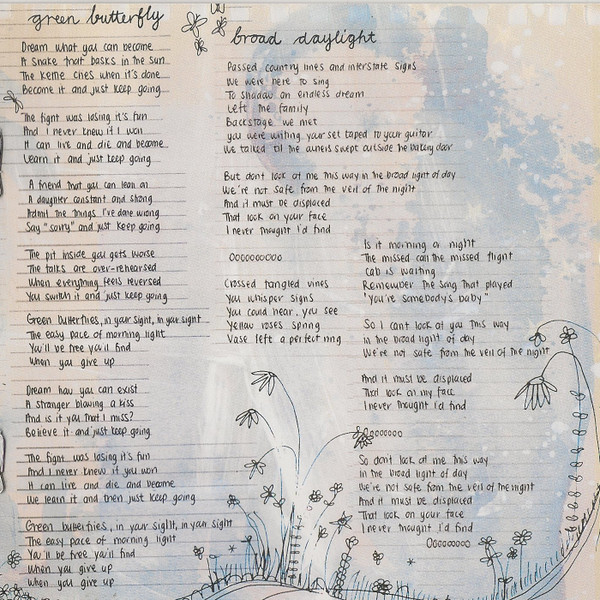 green butterfly
Dream what you can become
A snake that basks in the sun
The keme cries when it's done
Become it and just keep going
The fight was losing it's fun
And I never knew if I won
It can live and die and become
Learn it and just keep going
A friend that you can lean on
A daughter constant and strong
Admit the things I've done wrong
Say "sorry" and just keep going
The pit inside you gets worse
The talks are over-rehearsed
When everything feels reversed
You switch it and just keep going
Green butterflies, in your sight, in your sight
The easy pace of morning light
You'll be free you'll find
When you give up
Dream how you can exist
A stranger blowing a kiss
And is it you that I miss?
Believe it and just keep going
The fight was losing it's fun
And I never knew if you won
It can live and die and become
We learn it and then just keep going
Green butterflies, in your sight, in your sight
The easy pace of morning light
You'll be free you'll find
When you give up
When you give up
broad daylight
Passed country lines and interstate signs
We were here to sing
To shadow an endless dream
Left the family
Backstage we met
you were writing your set taped to your guitar
We talked til the owners swept outside the bakery door
But don't look at me this way in the broad light of day
We're not safe from the veil of the night
And it must be displaced
That look on your face
I never thought I'd find
Ooooooooo
Crossed tangled vines
You whisper signs
You could hear, you see
Yellow roses spring
Vase left a perfect ring
Is it morning or night
The missed call the missed flight
Cab is waiting
Remember the song that played
"You're somebody's baby"
So I can't look at you this way
in the broad light of day
We're not safe from the veil of the night
And it must be displaced
That look on my face
I never thought I'd find
Oooooooo
So don't look at me this way
in the broad light of day
We're not safe from the veil of the night
And it must be displaced
That look on your face
I never thought I'd find
Ooooooooo